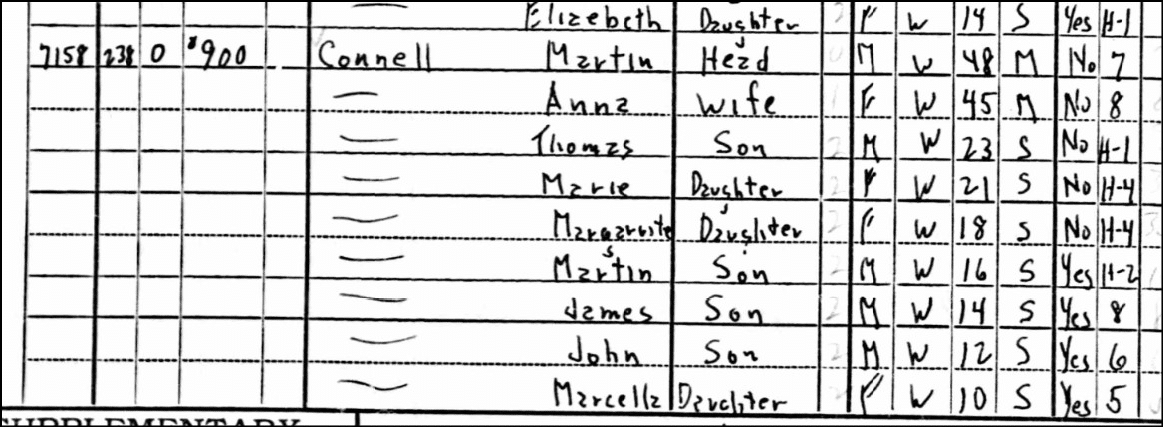 Elizebeth Daughter F W 14 S Yes H-1
7158 238 0 $900 Connell Martin Head M W 48 M No 7
— Anna wife F W 45 M No 8
— Thomas Son M W 23 S No H-1
— Marie Daughter F W 21 S No H-4
— Margarite Daughter F W 18 S No H-4
— Martin Son M W 16 S Yes H-2
— James Son M W 14 S Yes 8
— John Son M W 12 S Yes 6
— Marcella Daughter F W 10 S Yes 5
SUPPLEMENTARY